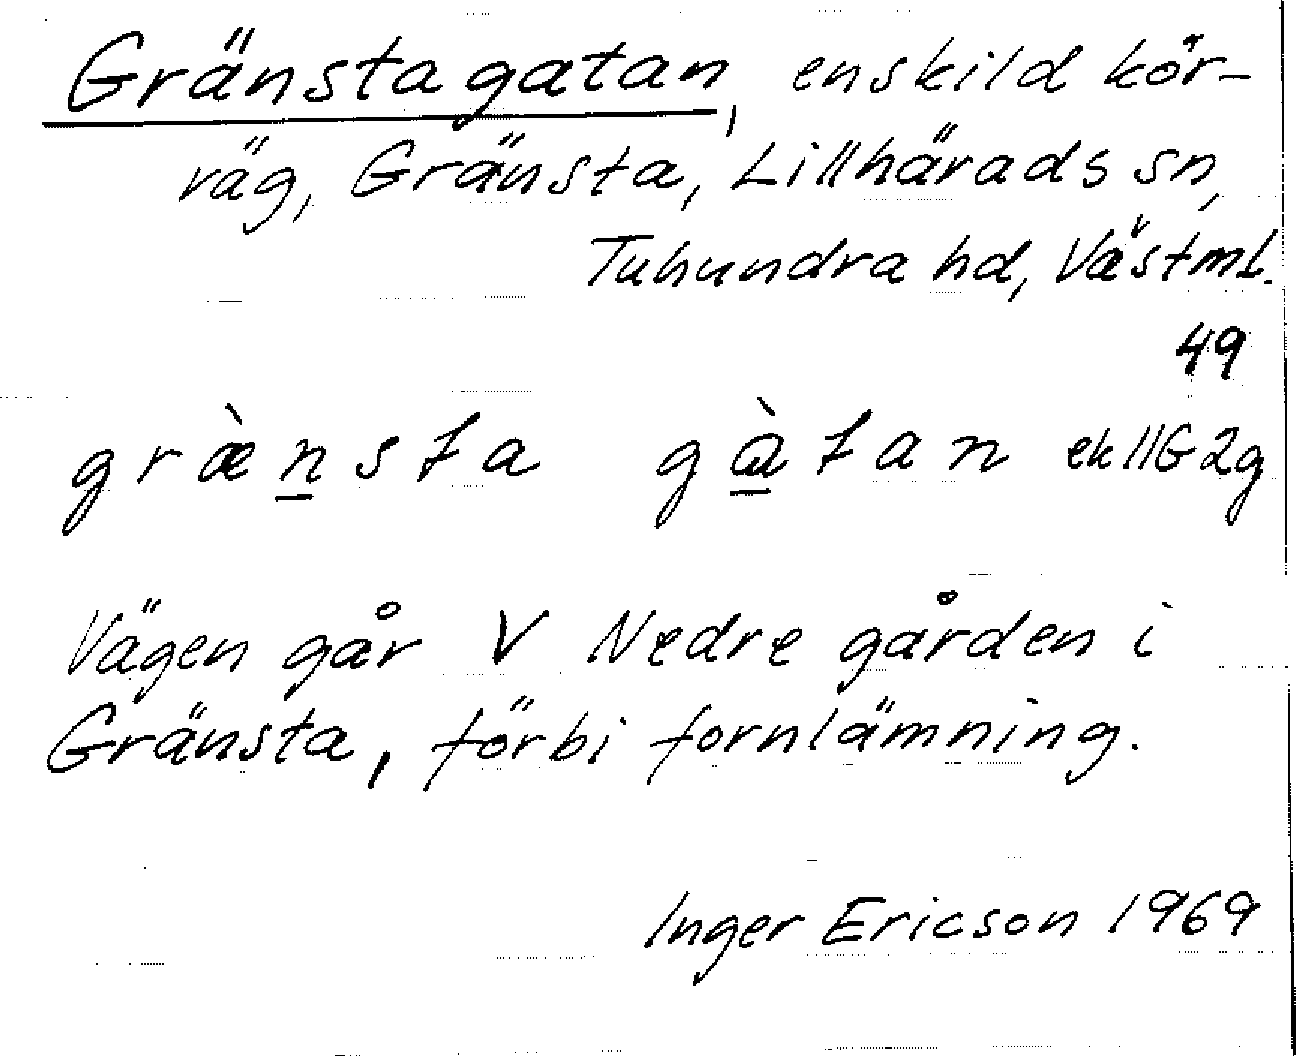 Gränstagatan, enskild kör-
väg, Gränsta, Lillhärads sn,
Tuhundra hd, Västml.
49
græ̀n̲sta gɑ̲̀tan ek 11G2g
Vägen går V Nedre gården i
Gränsta, förbi fornlämning.
Inger Ericson 1969